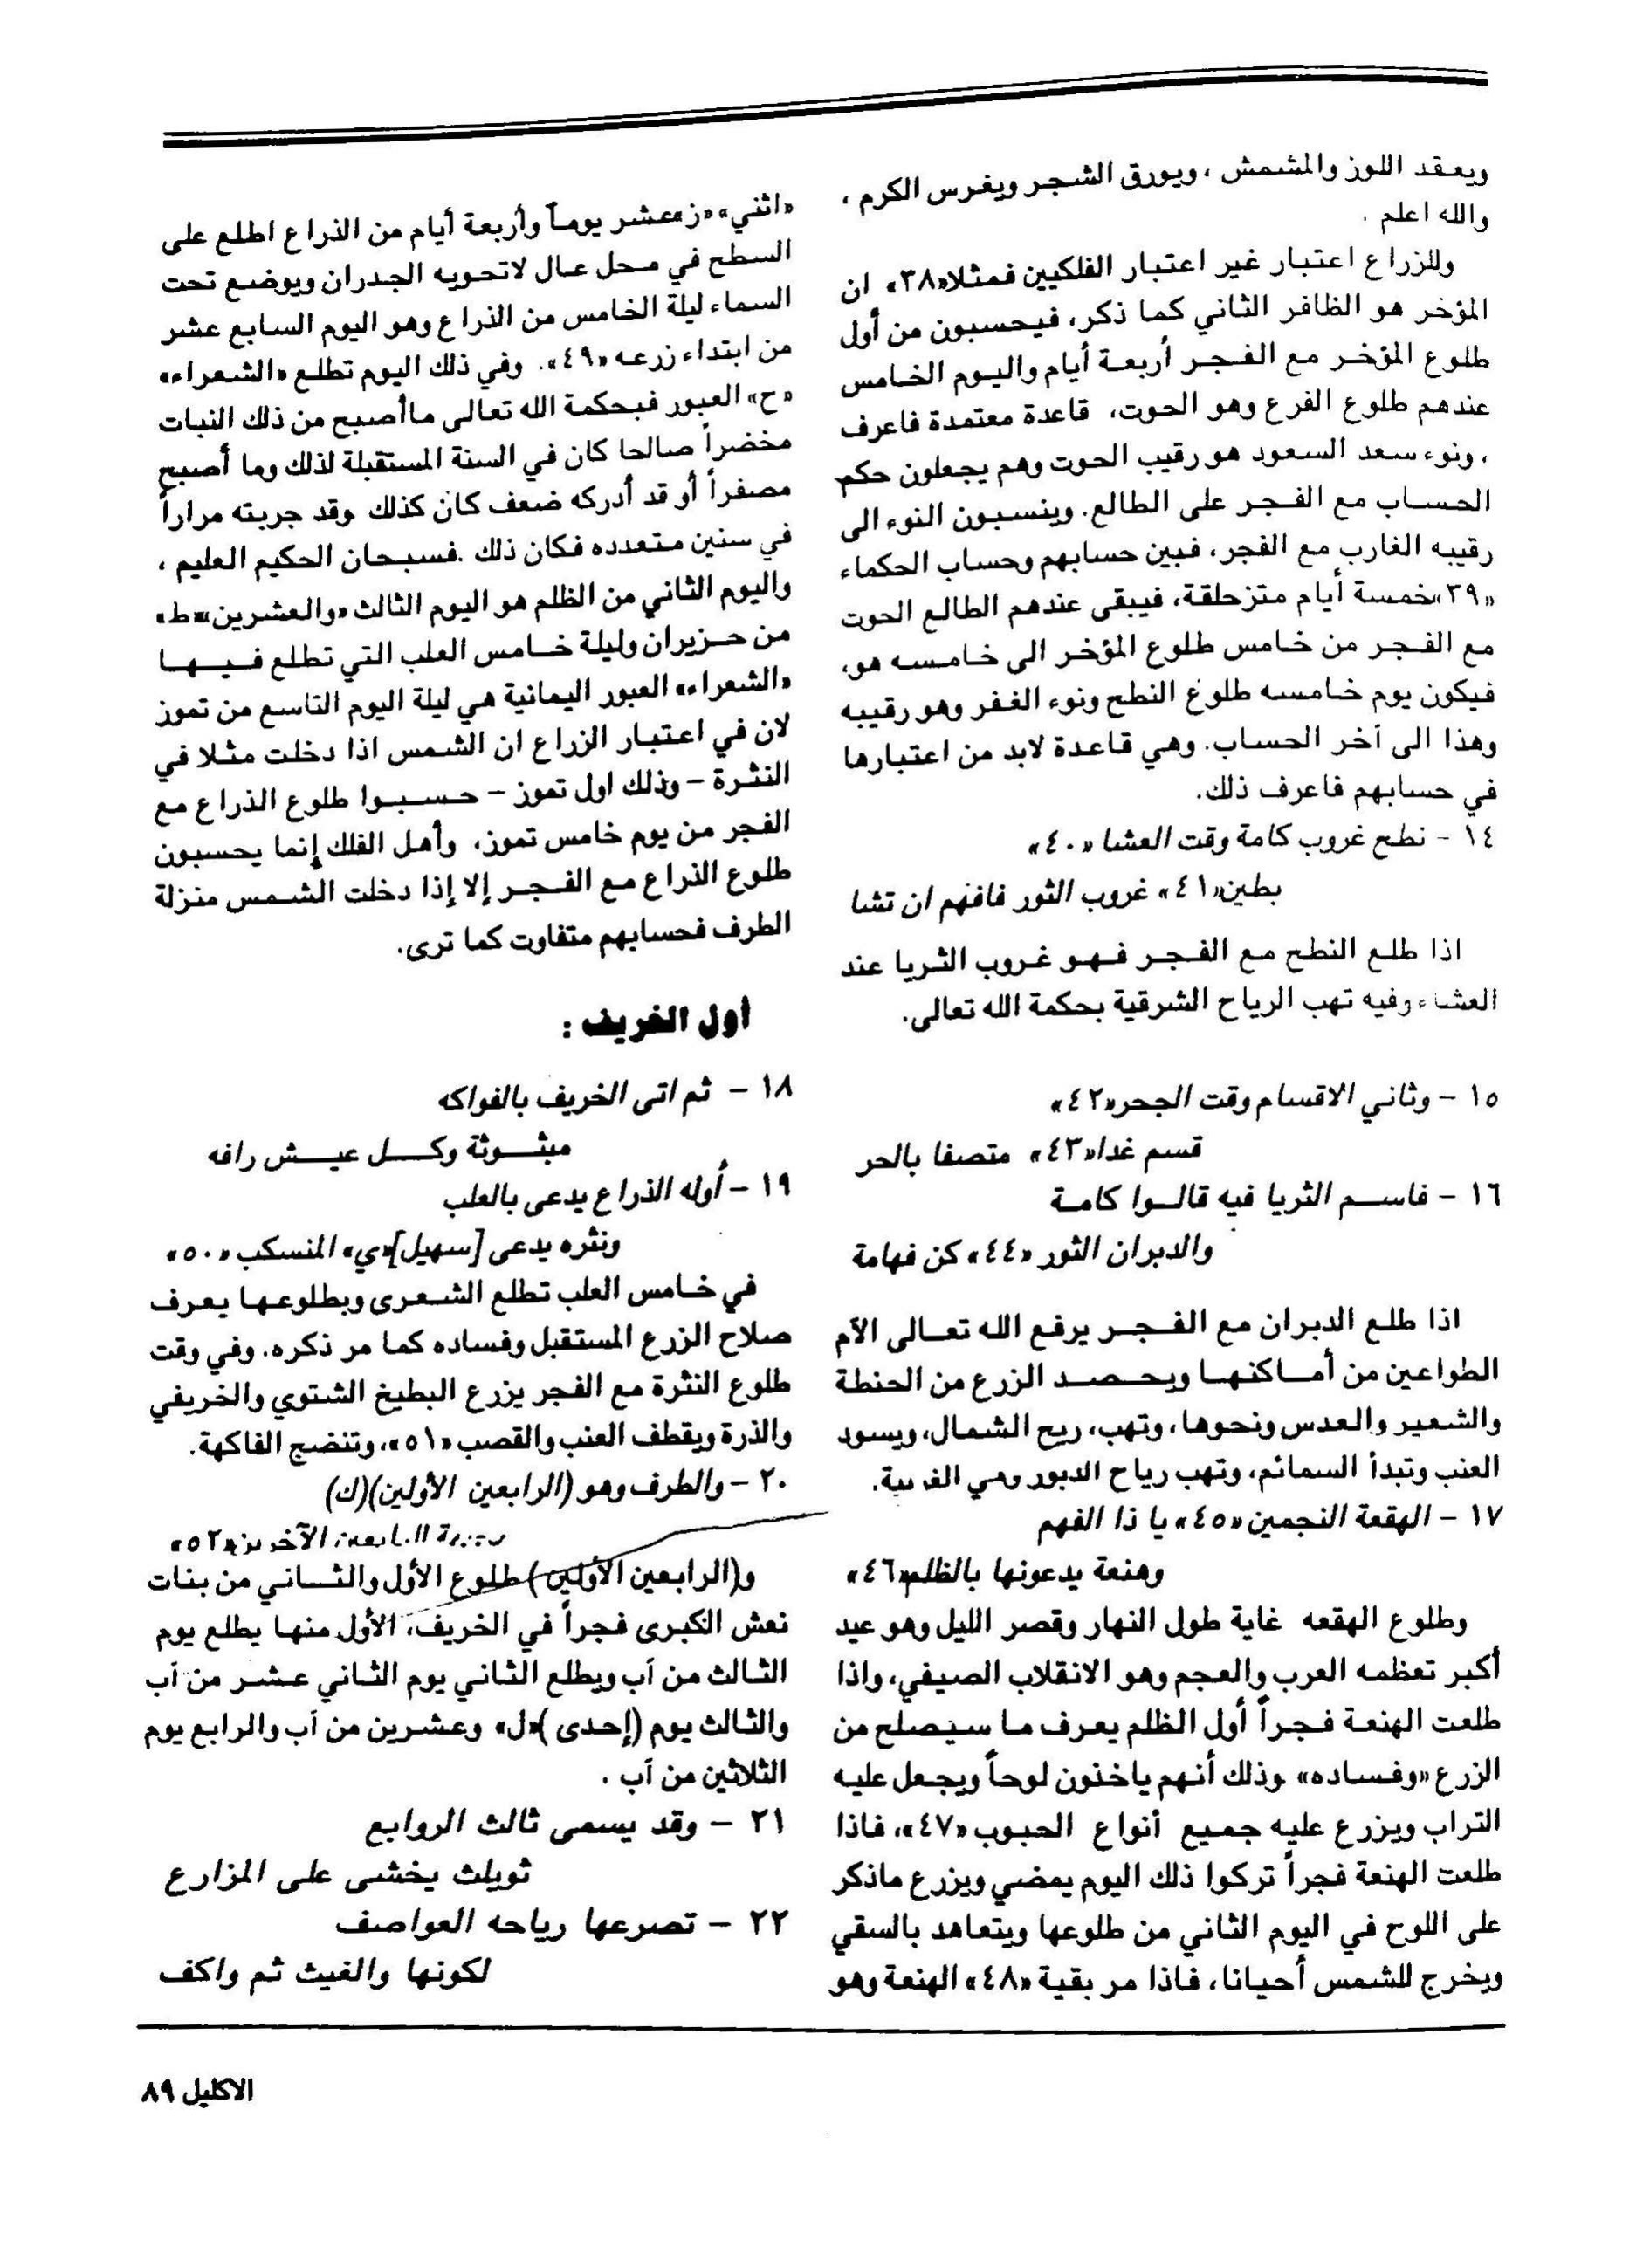 ويعقد اللوز والمشمش ، ويورق الشجر ويغرس الكرم ،
والله اعلم .
وللزراع اعتبار غير اعتبار الفلكيين فمثلا«٣٨» ان
المؤخر هو الظافر الثاني كما ذكر، فيحسبون من أول
طلوع المؤخر مع الفجر أربعة أيام واليوم الخامس
عندهم طلوع الفرع وهو الحوت، قاعدة معتمدة فاعرف
، ونوء سعد السعود هو رقيب الحوت وهم يجعلون حكم
الحساب مع الفجر على الطالع. وينسبون النوء الى
رقيبه الغارب مع الفجر، فبين حسابهم وحساب الحكماء
«٣٩»خمسة أيام متزحلقة، فيبقى عندهم الطالع الحوت
مع الفجر من خامس طلوع المؤخر الى خامسه هو،
فيكون يوم خامسه طلوع النطح ونوء الغفر وهو رقيبه
وهذا الى آخر الحساب. وهي قاعدة لابد من اعتبارها
في حسابهم فاعرف ذلك.
١٤ - نطح غروب كامة وقت العشا «٤٠»
بطين«٤١» غروب الثور فافهم ان تشا
اذا طلع النطح مع الفجر فهو غروب الثريا عند
العشاء وفيه تهب الرياح الشرقية بحكمة الله تعالى.
١٥ - وثاني الاقسام وقت الجحر«٤٢»
قسم غدا«٤٣» متصفا بالحر
١٦ - فاسم الثريا فيه قالوا كامة
والدبران الثور «٤٤» كن فهامة
اذا طلع الدبران مع الفجر يرفع الله تعالى الآم
الطواعين من أماكنها ويحصد الزرع من الحنطة
والشعير والعدس ونحوها، وتهب، ريح الشمال، ويسود
العنب وتبدأ السمائم، وتهب رياح الدبور وهي الغربية.
١٧ - الهقعة النجمين «٤٥» يا ذا الفهم
وهنعة يدعونها بالظلم«٤٦»
وطلوع الهقعه غاية طول النهار وقصر الليل وهو عيد
أكبر تعظمه العرب والعجم وهو الانقلاب الصيفي، واذا
طلعت الهنعة فجراً أول الظلم يعرف ما سيصلح من
الزرع «وفساده» وذلك أنهم ياخذون لوحاً ويجعل عليه
التراب ويزرع عليه جميع أنواع الحبوب «٤٧»، فاذا
طلعت الهنعة فجراً تركوا ذلك اليوم يمضي ويزرع ماذكر
على اللوح في اليوم الثاني من طلوعها ويتعاهد بالسقي
ويخرج للشمس أحيانا، فاذا مر بقية «٤٨» الهنعة وهو
«اثني» «ز»عشر يوماً وأربعة أيام من الذراع اطلع على
السطح في محل عال لاتحويه الجدران ويوضع تحت
السماء ليلة الخامس من الذراع وهو اليوم السابع عشر
من ابتداء زرعه «٤٩». وفي ذلك اليوم تطلع «الشعراء»
«ح» العبور فبحكمة الله تعالى ماأصبح من ذلك النبات
مخضراً صالحا كان في السنة المستقبلة لذلك وما أصبح
مصفراً أو قد أدركه ضعف كان كذلك وقد جربته مراراً
في سنين متعدده فكان ذلك .فسبحان الحكيم العليم ،
واليوم الثاني من الظلم هو اليوم الثالث «والعشرين»«ط»
من حزيران وليلة خامس العلب التي تطلع فيها
«الشعراء» العبور اليمانية هي ليلة اليوم التاسع من تموز
لان في اعتبار الزراع ان الشمس اذا دخلت مثلا في
النثرة - وذلك اول تموز - حسبوا طلوع الذراع مع
الفجر من يوم خامس تموز، وأهل الفلك إنما يحسبون
طلوع الذراع مع الفجر إلا إذا دخلت الشمس منزلة
الطرف فحسابهم متفاوت كما ترى.
أول الخريف :
١٨ - ثم اتى الخريف بالفواكه
مبثوثة وكل عيش رافه
١٩ - أوله الذراع يدعى بالعلب
ونثره يدعى [سهيل]«ي» المنسكب «٥٠»
في خامس العلب تطلع الشعرى وبطلوعها يعرف
صلاح الزرع المستقبل وفساده كما مر ذكره. وفي وقت
طلوع النثرة مع الفجر يزرع البطيخ الشتوي والخريفي
والذرة ويقطف العنب والقصب «٥١»، وتنضج الفاكهة.
٢٠ - والطرف وهو (الرابعين الأولين)(ك)
الآخرين«٥٢»
و(الرابعين الأولين) طلوع الأول والثاني من بنات
نعش الكبرى فجراً في الخريف، الأول منها يطلع يوم
الثالث من آب ويطلع الثاني يوم الثاني عشر من آب
والثالث يوم (إحدى )«ل» وعشرين من آب والرابع يوم
الثلاثين من آب .
٢١ - وقد يسمى ثالث الروابع
ثويلث يخشى على المزارع
٢٢ - تصرعها رياحه العواصف
لكونها والغيث ثم واكف
الاكليل ٨٩